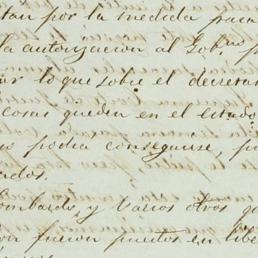 tan por la medida para
la autorizacion al Gob.no p
lo que sobre el decreta
cosas queden en el estado
podia conseguirse, p
ados.
ombardo, y varios otros q
fueron puestos en libe